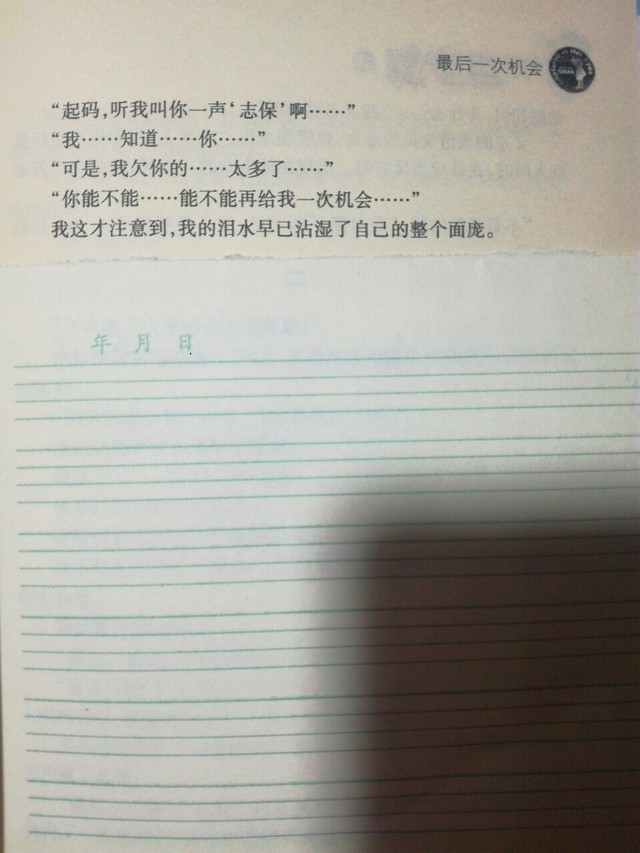 最后一次机会
“起码，听我叫你一声‘志保’啊……”
“我……知道……你……”
“可是，我欠你的……太多了……”
“你能不能……能不能再给我一次机会……”
我这才注意到，我的泪水早已沾湿了自己的整个面庞。
年 月 日